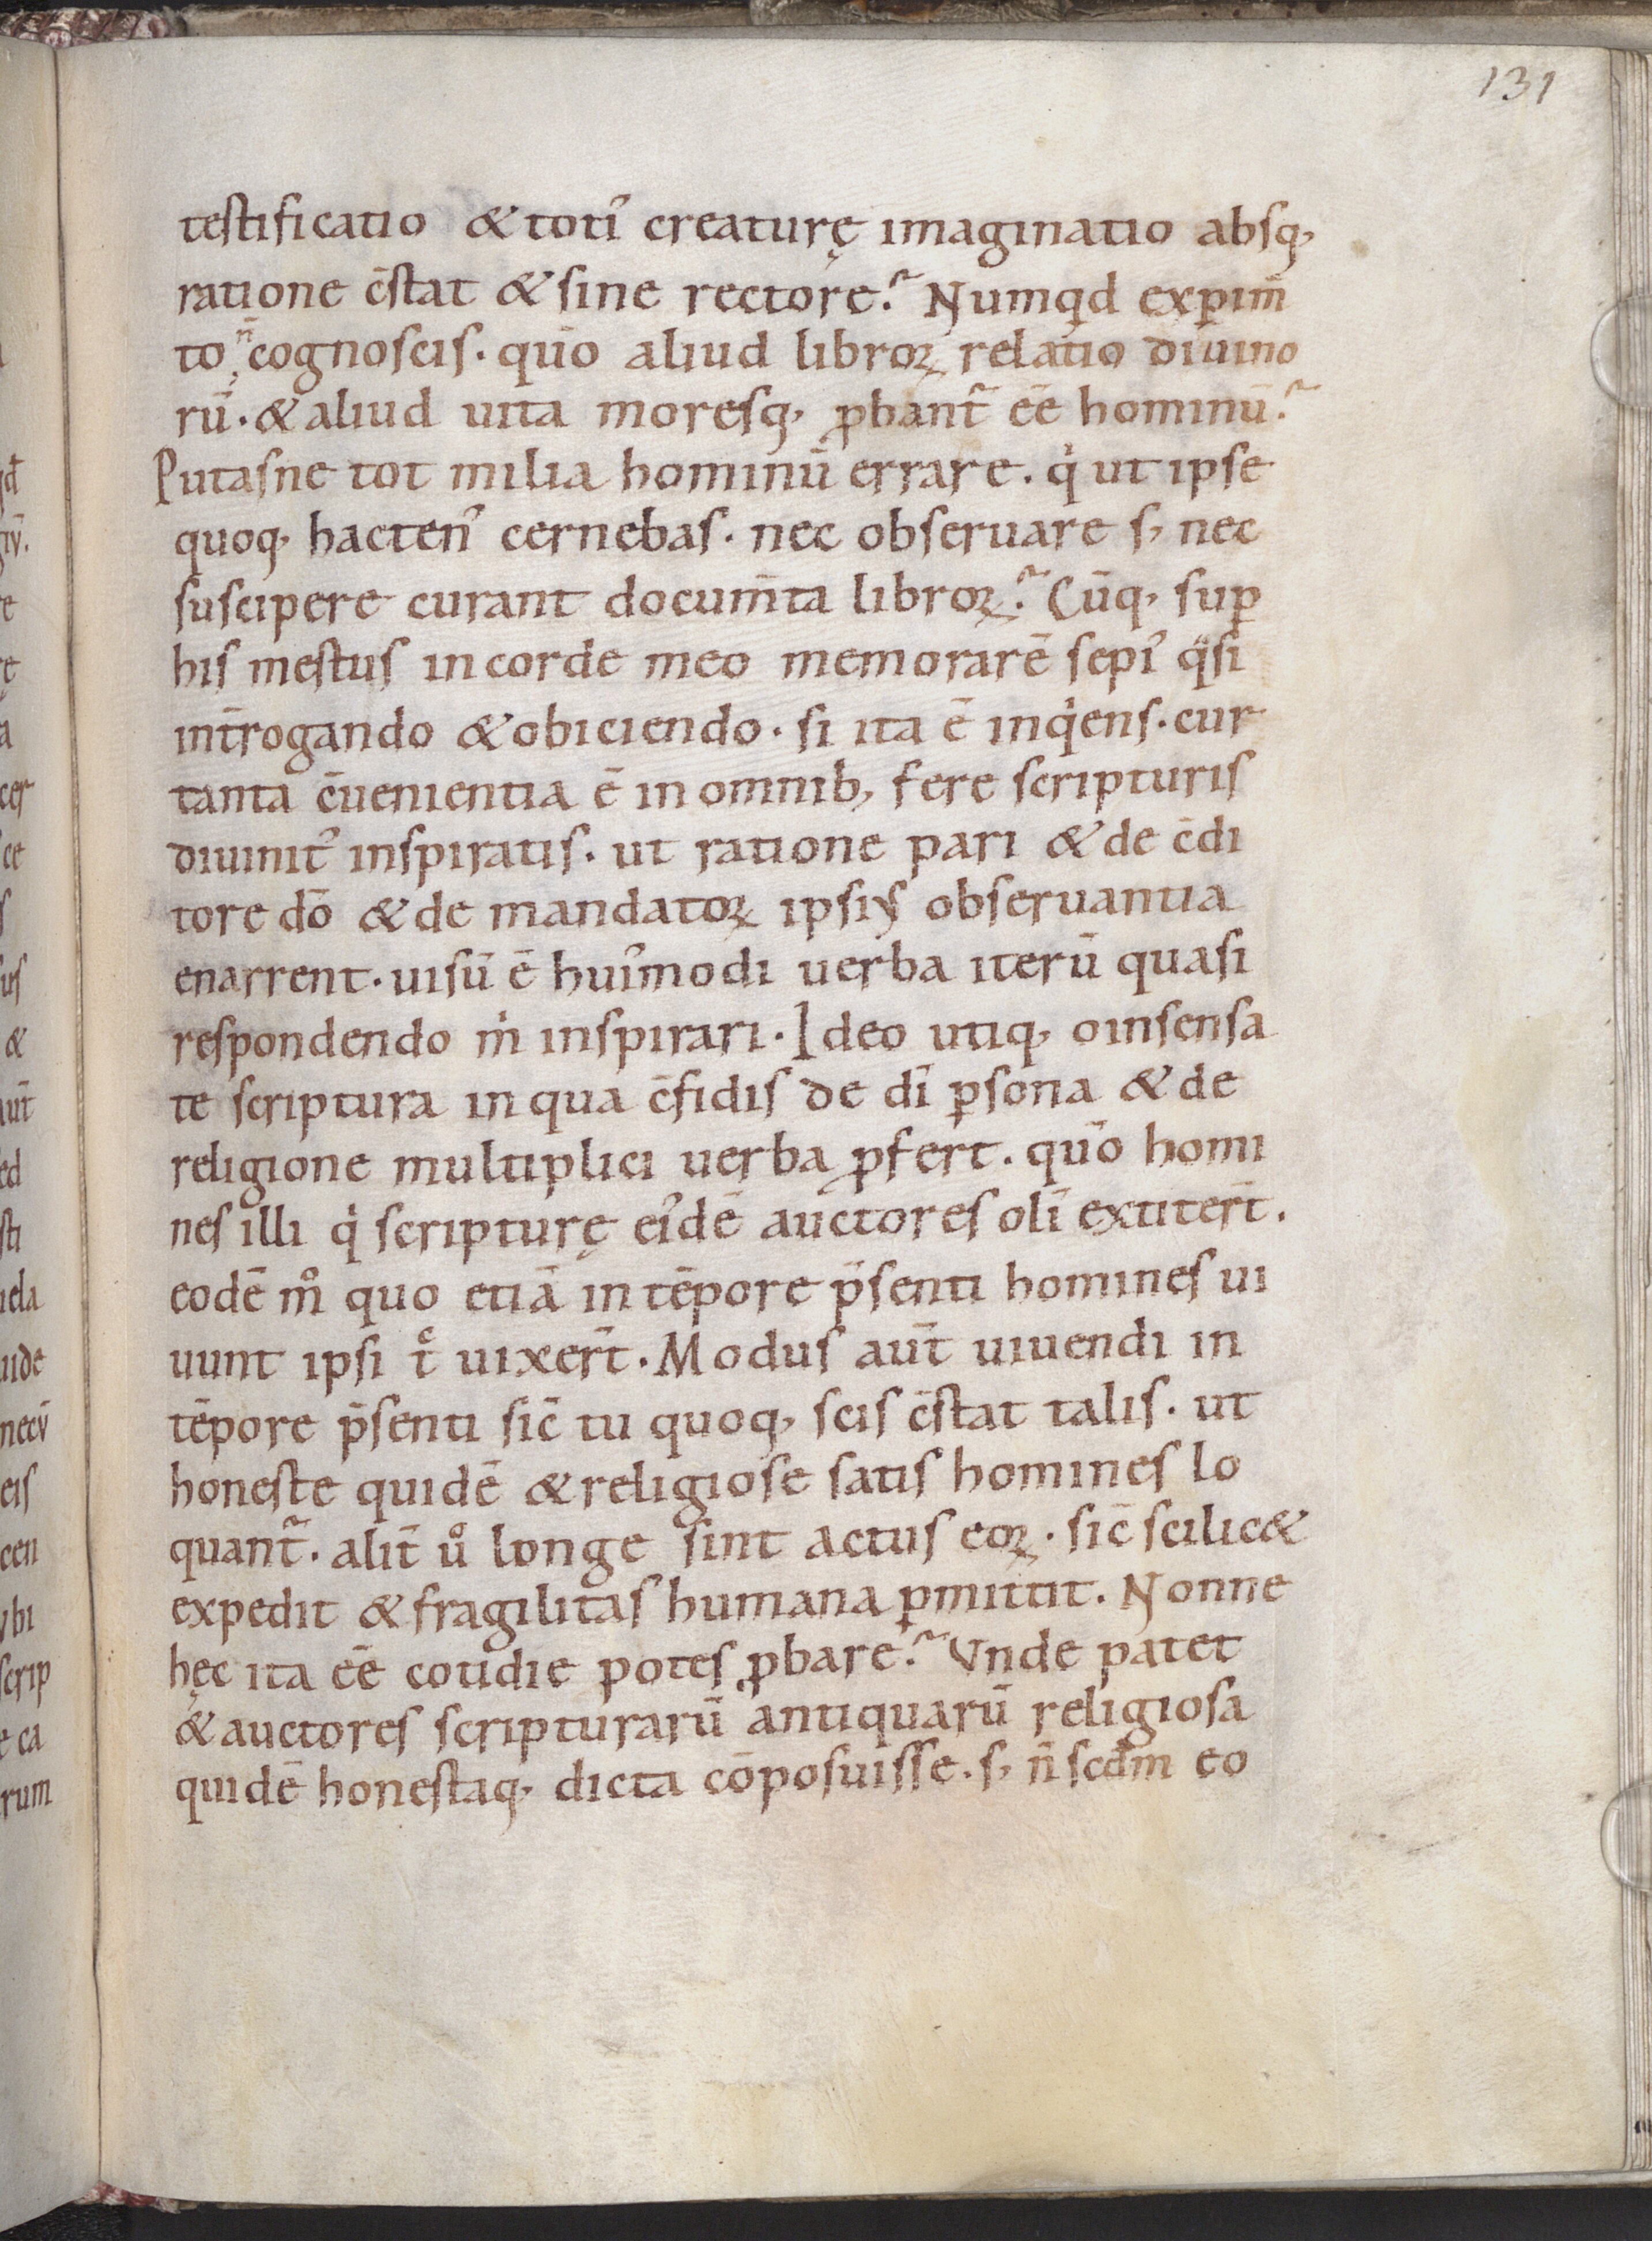 131
testificatio & toti᾽ creaturę imaginatio absq;
ratione c̄stat & sine rectore? Numqd expim̄
to n̄ cognoscis. quō aliud libroꝝ relatio diuino
rū. & aliud uita moresq; ꝓbant᷑ eē hominū?
Putasne tot milia hominū errare. qͥ ut ipse
quoq; hacten᾽ cernebas. nec obseruare s; nec
suscipere curant docum̄ta libroꝝ? Cūq; suꝑ
his mestus in corde meo memorarē sepi᾽ qͣsi
int̄rogando & obiciendo. si ita ē inqͥens. cur
tanta c̄uenientia ē in omnib; fere scripturis
diuinit᾽ inspiratis. ut ratione pari & de c̄di
tore dō & de mandatoꝝ ipsiꝰ obseruantia
enarrent. uisū ē hui᾽modi uerba iterū quasi
respondendo mͥ inspirari. Ideo utiq; o insensa
te scriptura in qua c̄fidis de dī ꝑsona & de
religione multiplici uerba ꝓfert. quō homi
nes illi qͥ scripturę ei᾽dē auctores olī extiter̄t.
eodē mͦ quo etiā in tēpore p̄senti homines ui
uunt ipsi tͨ uixer̄t. Modus aūt uiuendi in
tēpore p̄senti sic̄ tu quoq; scis c̄stat talis. ut
honeste quidē & religiose satis homines lo
quant᷑. alit̄ uͦ longe sint actus eoꝝ. sic̄ scilic&
expedit & fragilitas humana ꝑmittit. Nonne
hęc ita eē cotidie potes ꝓbare? Vnde patet
& auctores scripturarū antiquarū religiosa
quidē honestaq; dicta cōposuisse. s; n̄ scdm̄ eo